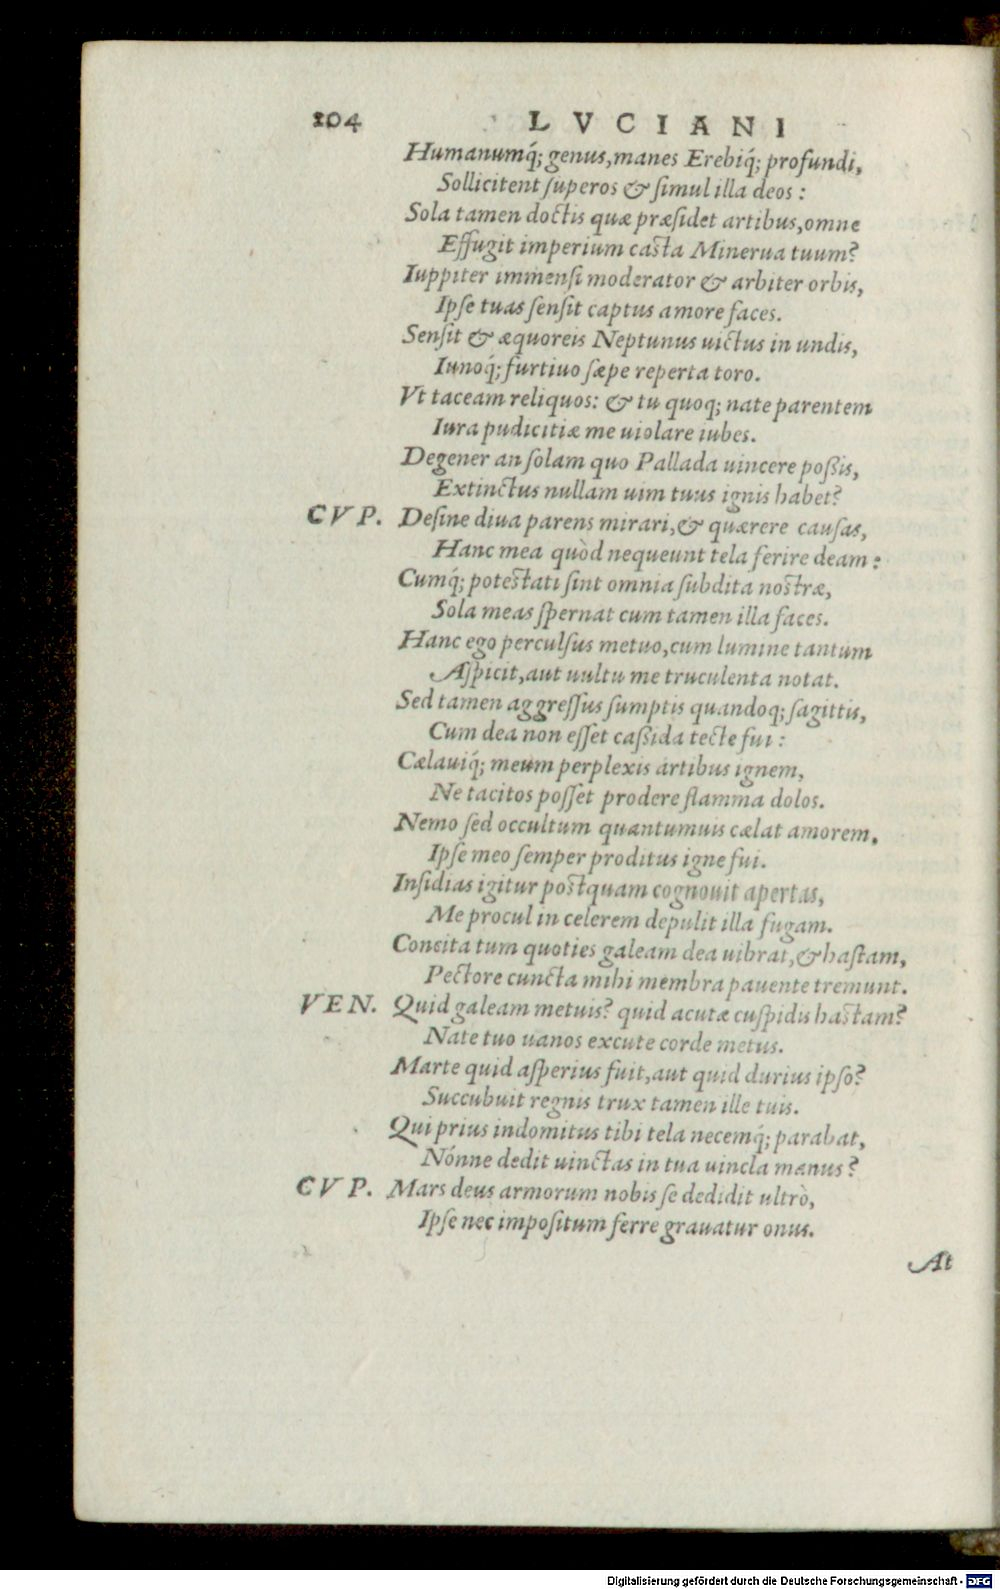 104 LVCIANI
Humanumq́; genus, manes Erebiq́; profundi,
Sollicitent ſuperos & ſimul illa deos:
Sola tamen doctis quæ præſidet artibus, omne
Effugit imperium caſta Minerua tuum?
Iuppiter immenſi moderator & arbiter orbis,
Ipſe tuas ſenſit captus amore faces.
Senſit & æquoreis Neptunus uictus in undis,
Iunoq́; furtiuo ſæpe reperta toro.
Vt taceam reliquos: & tu quoq; nate parentem
Iura pudicitiæ me uiolare iubes.
Degener an ſolam quo Pallada uincere poßis,
Extinctus nullam uim tuus ignis habet?
CVP. Deſine diua parens mirari, & quærere cauſas,
Hanc mea quòd nequeunt tela ferire deam:
Cumq́; poteſtati ſint omnia ſubdita noſtræ,
Sola meas ſpernat cum tamen illa faces.
Hanc ego perculſus metuo, cum lumine tantum
Aſpicit, aut uultu me truculenta notat.
Sed tamen aggreſſus ſumptis quandoq; ſagittis,
Cum dea non eſſet caßida tecte fui:
Cælauiq́; meum perplexis artibus ignem,
Ne tacitos poſſet prodere flamma dolos.
Nemo ſed occultum quantumuis cælat amorem,
Ipſe meo ſemper proditus igne fui.
Inſidias igitur poſtquam cognouit apertas,
Me procul in celerem depulit illa fugam.
Concita tum quoties galeam dea uibrat, & haſtam,
Pectore cuncta mihi membra pauente tremunt.
VEN. Quid galeam metuis? quid acutæ cuſpidis haſtam?
Nate tuo uanos excute corde metus.
Marte quid aſperius fuit, aut quid durius ipſo?
Succubuit regnis trux tamen ille tuis.
Qui prius indomitus tibi tela necemq́; parabat,
Nónne dedit uinctas in tua uincla manus?
CVP. Mars deus armorum nobis ſe dedidit ultrò,
Ipſe nec impoſitum ferre grauatur onus.
At
Digitalisierung gefördert durch die Deutsche Forschungsgemeinschaft - DFG